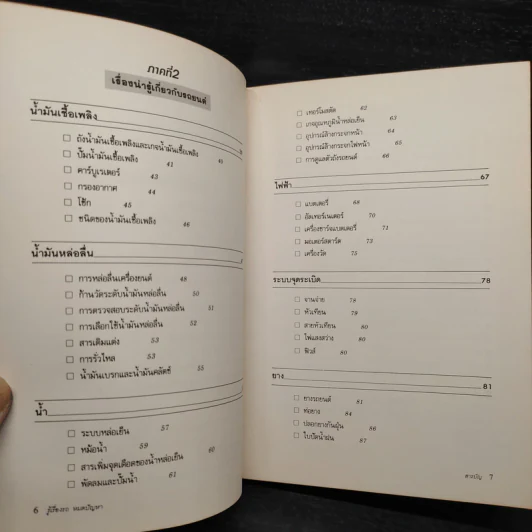 ภาคที่2
เรื่องน่ารู้เกี่ยวกับรถยนต์
น้ำมันเชื้อเพลิง
ถังน้ำมันเชื้อเพลิงและเกจน้ำมันเชื้อเพลิง
ปั๊มน้ำมันเชื้อเพลิง 41
คาร์บูเรเตอร์ 43
กรองอากาศ 44
โช๊ก 45
ชนิดของน้ำมันเชื้อเพลิง 46
น้ำมันหล่อลื่น
การหล่อลื่นเครื่องยนต์ 48
ก้านวัดระดับน้ำมันหล่อลื่น 50
การตรวจสอบระดับน้ำมันหล่อลื่น 51
การเลือกใช้น้ำมันหล่อลื่น 52
สารเติมแต่ง 53
การรั่วไหล 53
น้ำมันเบรกและน้ำมันคลัตช์ 55
น้ำ
ระบบหล่อเย็น 57
หม้อน้ำ 59
สารเพิ่มจุดเดือดของน้ำหล่อเย็น 60
พัดลมและปั๊มน้ำ 61
6 รู้เรื่องรถ หมดปัญหา
เทอร์โมสตัด 62
เกจอุณหภูมิน้ำหล่อเย็น 63
อุปกรณ์ล้างกระจกหน้า 64
อุปกรณ์ล้างกระจกไฟหน้า 65
การดูแลตัวถังรถยนต์ 66
ไฟฟ้า 67
แบตเตอรี่ 68
อัลเทอร์เนเตอร์ 70
เครื่องชาร์จแบตเตอรี่ 71
มอเตอร์สตาร์ต 73
เครื่องวัด 75
ระบบจุดระเบิด 78
จานจ่าย 78
หัวเทียน 79
สายหัวเทียน 80
ไฟแสงสว่าง 80
ฟิวส์ 80
ยาง 81
ยางรถยนต์ 81
ท่อยาง 84
ปลอกยางกันฝุ่น 86
ใบปัดน้ำฝน 87
สารบัญ 7